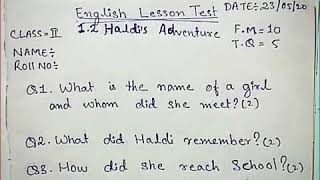 English Lesson Test DATE:-23/05/20
CLASS=II 1.2 Haldi's Adventure F.M=10
NAME:- T.Q=5
ROLL NO:-
Q1. What is the name of a girl
and whom did she meet?(2)
Q2. What did Haldi remember?(2)
Q3. How did she reach School?(2)